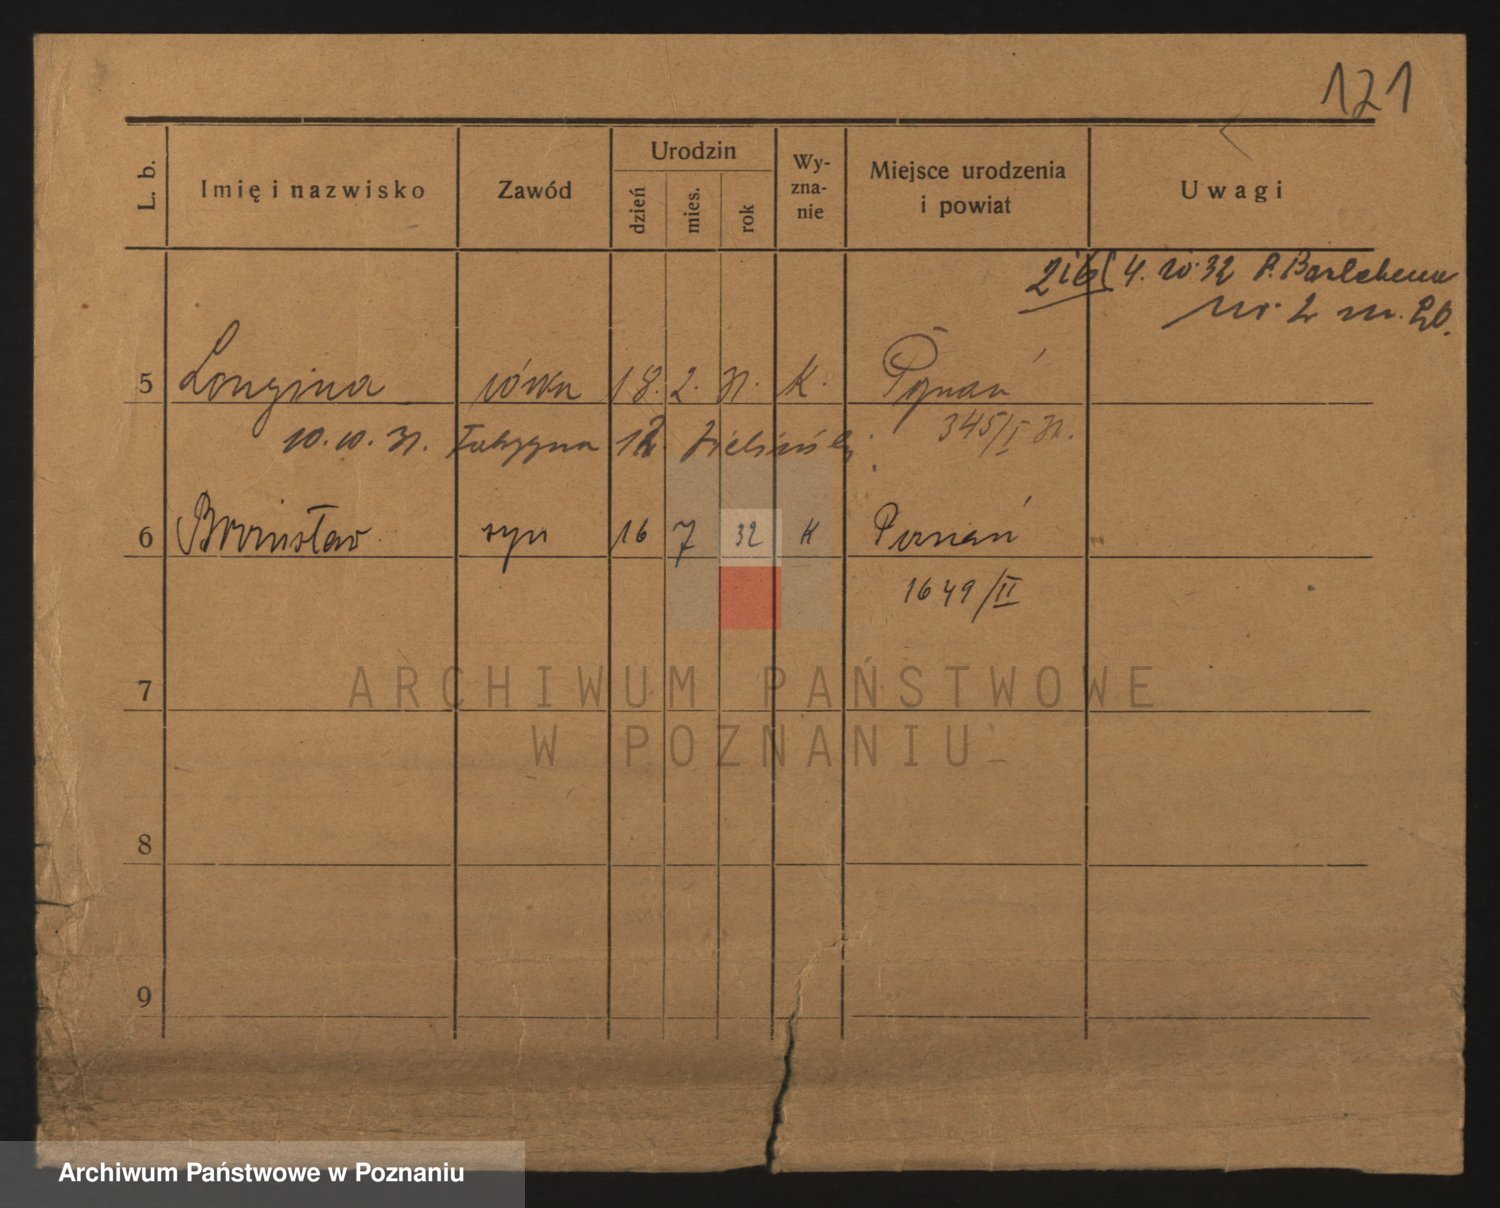 121
L. b.
Imię i nazwisko
Zawód
Urodzin
dzień
mies.
rok
Wy-
zna-
nie
Miejsce urodzenia
i powiat
Uwagi
4. 10. 32
nr. 2 m. 20.
5 Longina córka 18. 2. 31. K. Poznań
345/I 31.
10. 10. 31. 12.
6 Bronisław syn 16 7 32 K Poznań
1649/II
7
ARCHIWUM PAŃSTWOWE
W POZNANIU
8
9
Archiwum Państwowe w Poznaniu